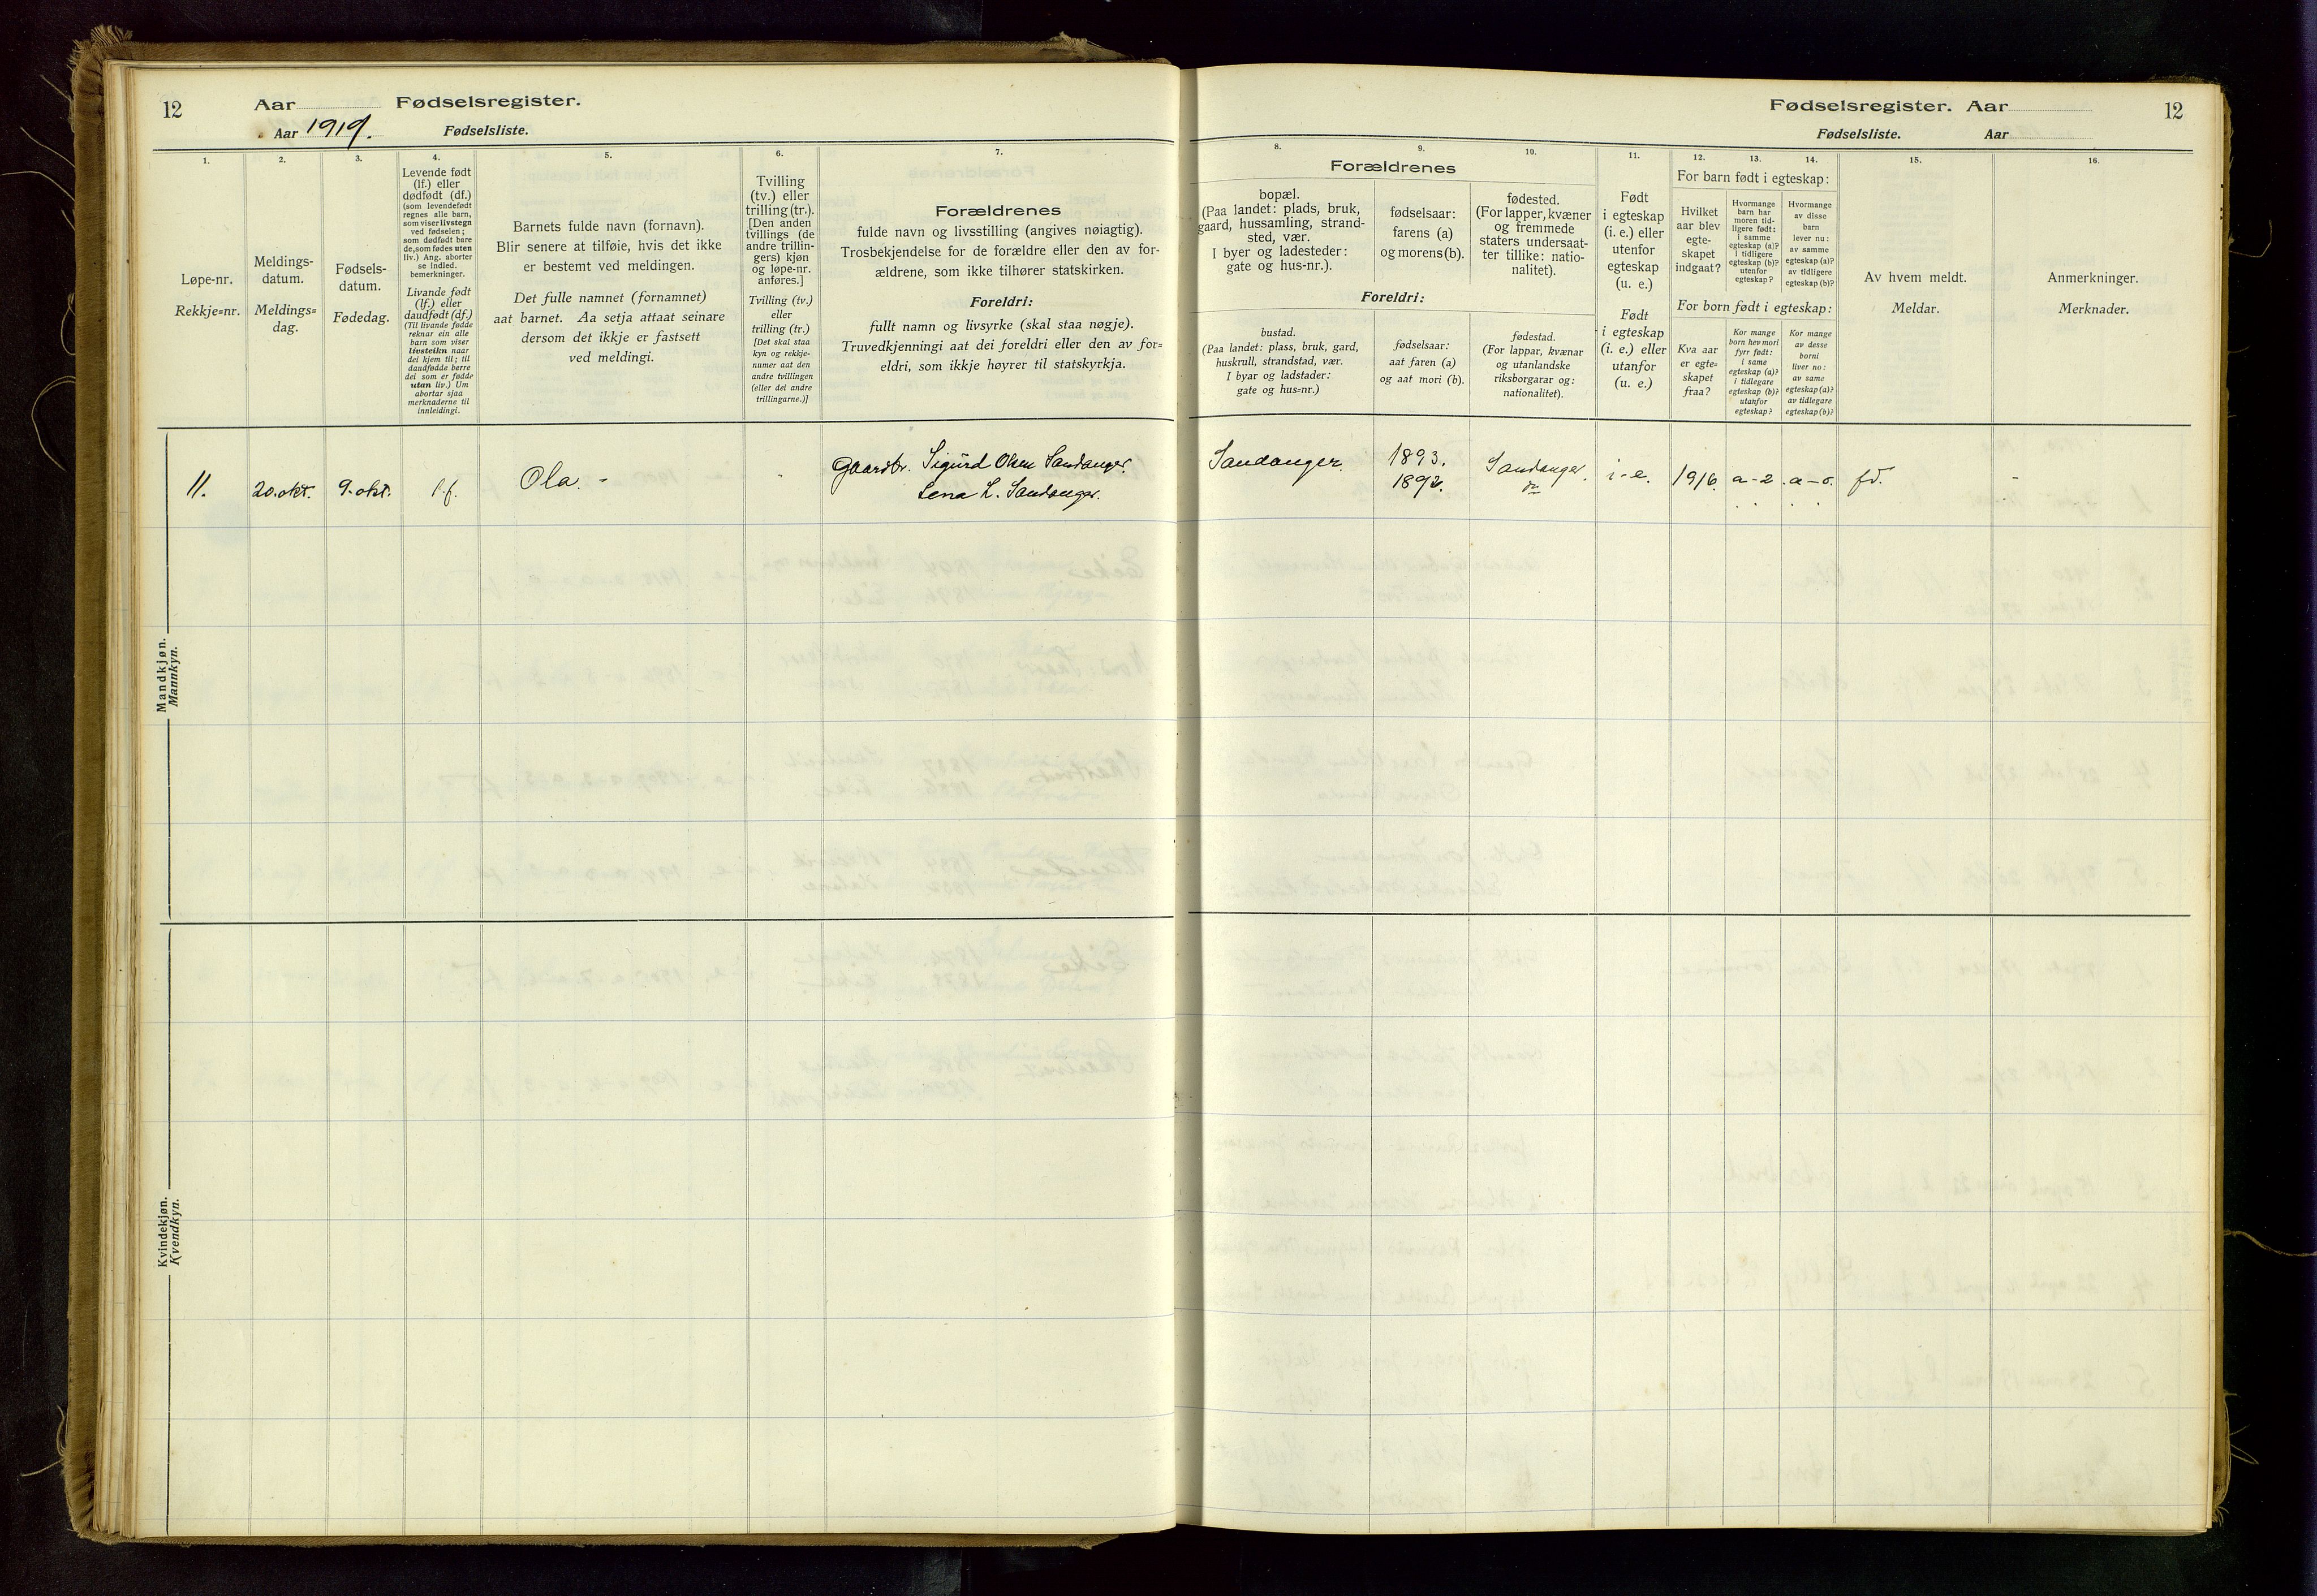 12
Aar
Fødselsregister.
Aar 1919.
Fødselsliste.
1.
2.
3.
4.
5.
6.
7.
Løpe-nr.
Rekkje=nr.
Meldings-
datum.
Meldings=
dag.
Fødsels-
datum.
Fødedag.
Levende født
(lf.) eller
dødfødt (df.)
(som levendefødt
regnes alle barn,
som viser livstegn
ved fødselen;
som dødfødt bare
de, som fødes uten
liv.) Ang. aborter
se indled.
bemerkninger.
Livande født
(lf.) eller
daudfødt (df.)
(Til livande fødde
reknar ein alle
barn som viser
livsteikn naar
dei kjem til; til
daudfødde berre
dei som er fødde
utan liv.) Um
abortar sjaa
merknaderne til
innleidingi.
Barnets fulde navn (fornavn).
Blir senere at tilføie, hvis det ikke
er bestemt ved meldingen.
Det fulle namnet (fornamnet)
aat barnet. Aa setja attaat seinare
dersom det ikkje er fastsett
ved meldingi.
Tvilling
(tv.) eller
trilling (tr.).
[Den anden
tvillings (de
andre trillin-
gers) kjøn
og løpe-nr.
anføres.]
Tvilling (tv.)
eller
trilling (tr.)
[Det skal staa
kyn og rekkje-
numer aat den
andre tvillingen
(eller dei andre
trillingarne.)]
Forældrenes
fulde navn og livsstilling (angives nøiagtig).
Trosbekjendelse for de forældre eller den av for-
ældrene, som ikke tilhører statskirken.
Foreldri:
fullt namn og livsyrke (skal staa nøgje).
Truvedkjenningi aat dei foreldri eller den av for=
eldri, som ikkje høyrer til statskyrkja.
Mandkjøn.
Mannkyn.
11.
20. okt.
9. okt.
l.f.
Ola. -
Gaardbr. Sigurd Olsen Sandanger.
Lena L. Sandanger.
Kvindekjøn.
Kvendkyn.
Fødselsregister. Aar
12
Fødselsliste.
Aar
8.
9.
10.
11.
12.
13.
14.
15.
16.
Forældrenes
bopæl.
(Paa landet: plads, bruk,
gaard, hussamling, strand-
sted, vær.
I byer og ladesteder:
gate og hus-nr.).
fødselsaar:
farens (a)
og morens (b).
fødested.
(For lapper, kvæner
og fremmede
staters undersaat-
ter tillike: natio-
nalitet).
Foreldri:
bustad.
(Paa landet: plass, bruk, gard,
huskrull, strandstad, vær.
I byar og ladstader:
gate og hus=nr.)
fødselsaar:
aat faren (a)
og aat mori (b).
fødestad.
(For lappar, kvænar
og utanlandske
riksborgarar og:
nationalitet).
Født
i egteskap
(i. e.) eller
utenfor
egteskap
(u. e.)
Født
i egteskap
(i. e.) eller
utanfor
(u. e.)
For barn født i egteskap:
Hvilket
aar blev
egte-
skapet
indgaat?
Hvormange
barn har
moren tid-
ligere født:
i samme
egteskap (a)?
i tidligere
egteskap (b)?
utenfor
egteskap?
Hvormange
av disse
barn
lever nu:
av samme
egteskap (a)?
av tidligere
egteskap (b)?
For born født i egteskap:
Kva aar
er egte=
skapet
fraa?
Kor mange
born hev mori
fyrr født:
i same
egteskap (a)?
i tidlegare
egteskap (b)?
utanfor
egteskap?
Kor mange
av desse
borni
liver no:
av same
egteskap (a)?
av tidlegare
egteskap (b)?
Av hvem meldt.
Meldar.
Anmerkninger.
Merknader.
Sandanger.
1893.
1892.
Sandanger.
do
i-e.
1916.
a-2
a-0.
fd.
-